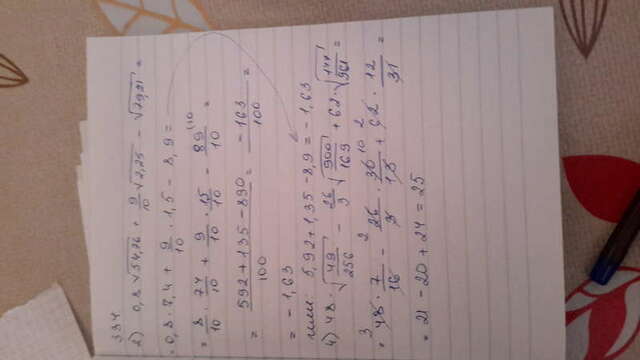 334
2) 0,8·√54,76 + 9/10 √2,25 − √79,21 =
= 0,8·7,4 + 9/10 · 1,5 − 8,9 =
= 8/10 · 74/10 + 9/10 · 15/10 − 89/10 (10 =
= (592 + 135 − 890)/100 = −163/100 =
= −1,63
или: 5,92 + 1,35 − 8,9 = −1,63
4) 48·√(49/256) − 26/3 √(900/169) + 62·√(144/961) =
= 48 3 · 7/16 − 26 2/3 · 30 10/13 + 62 2 · 12/31 =
= 21 − 20 + 24 = 25